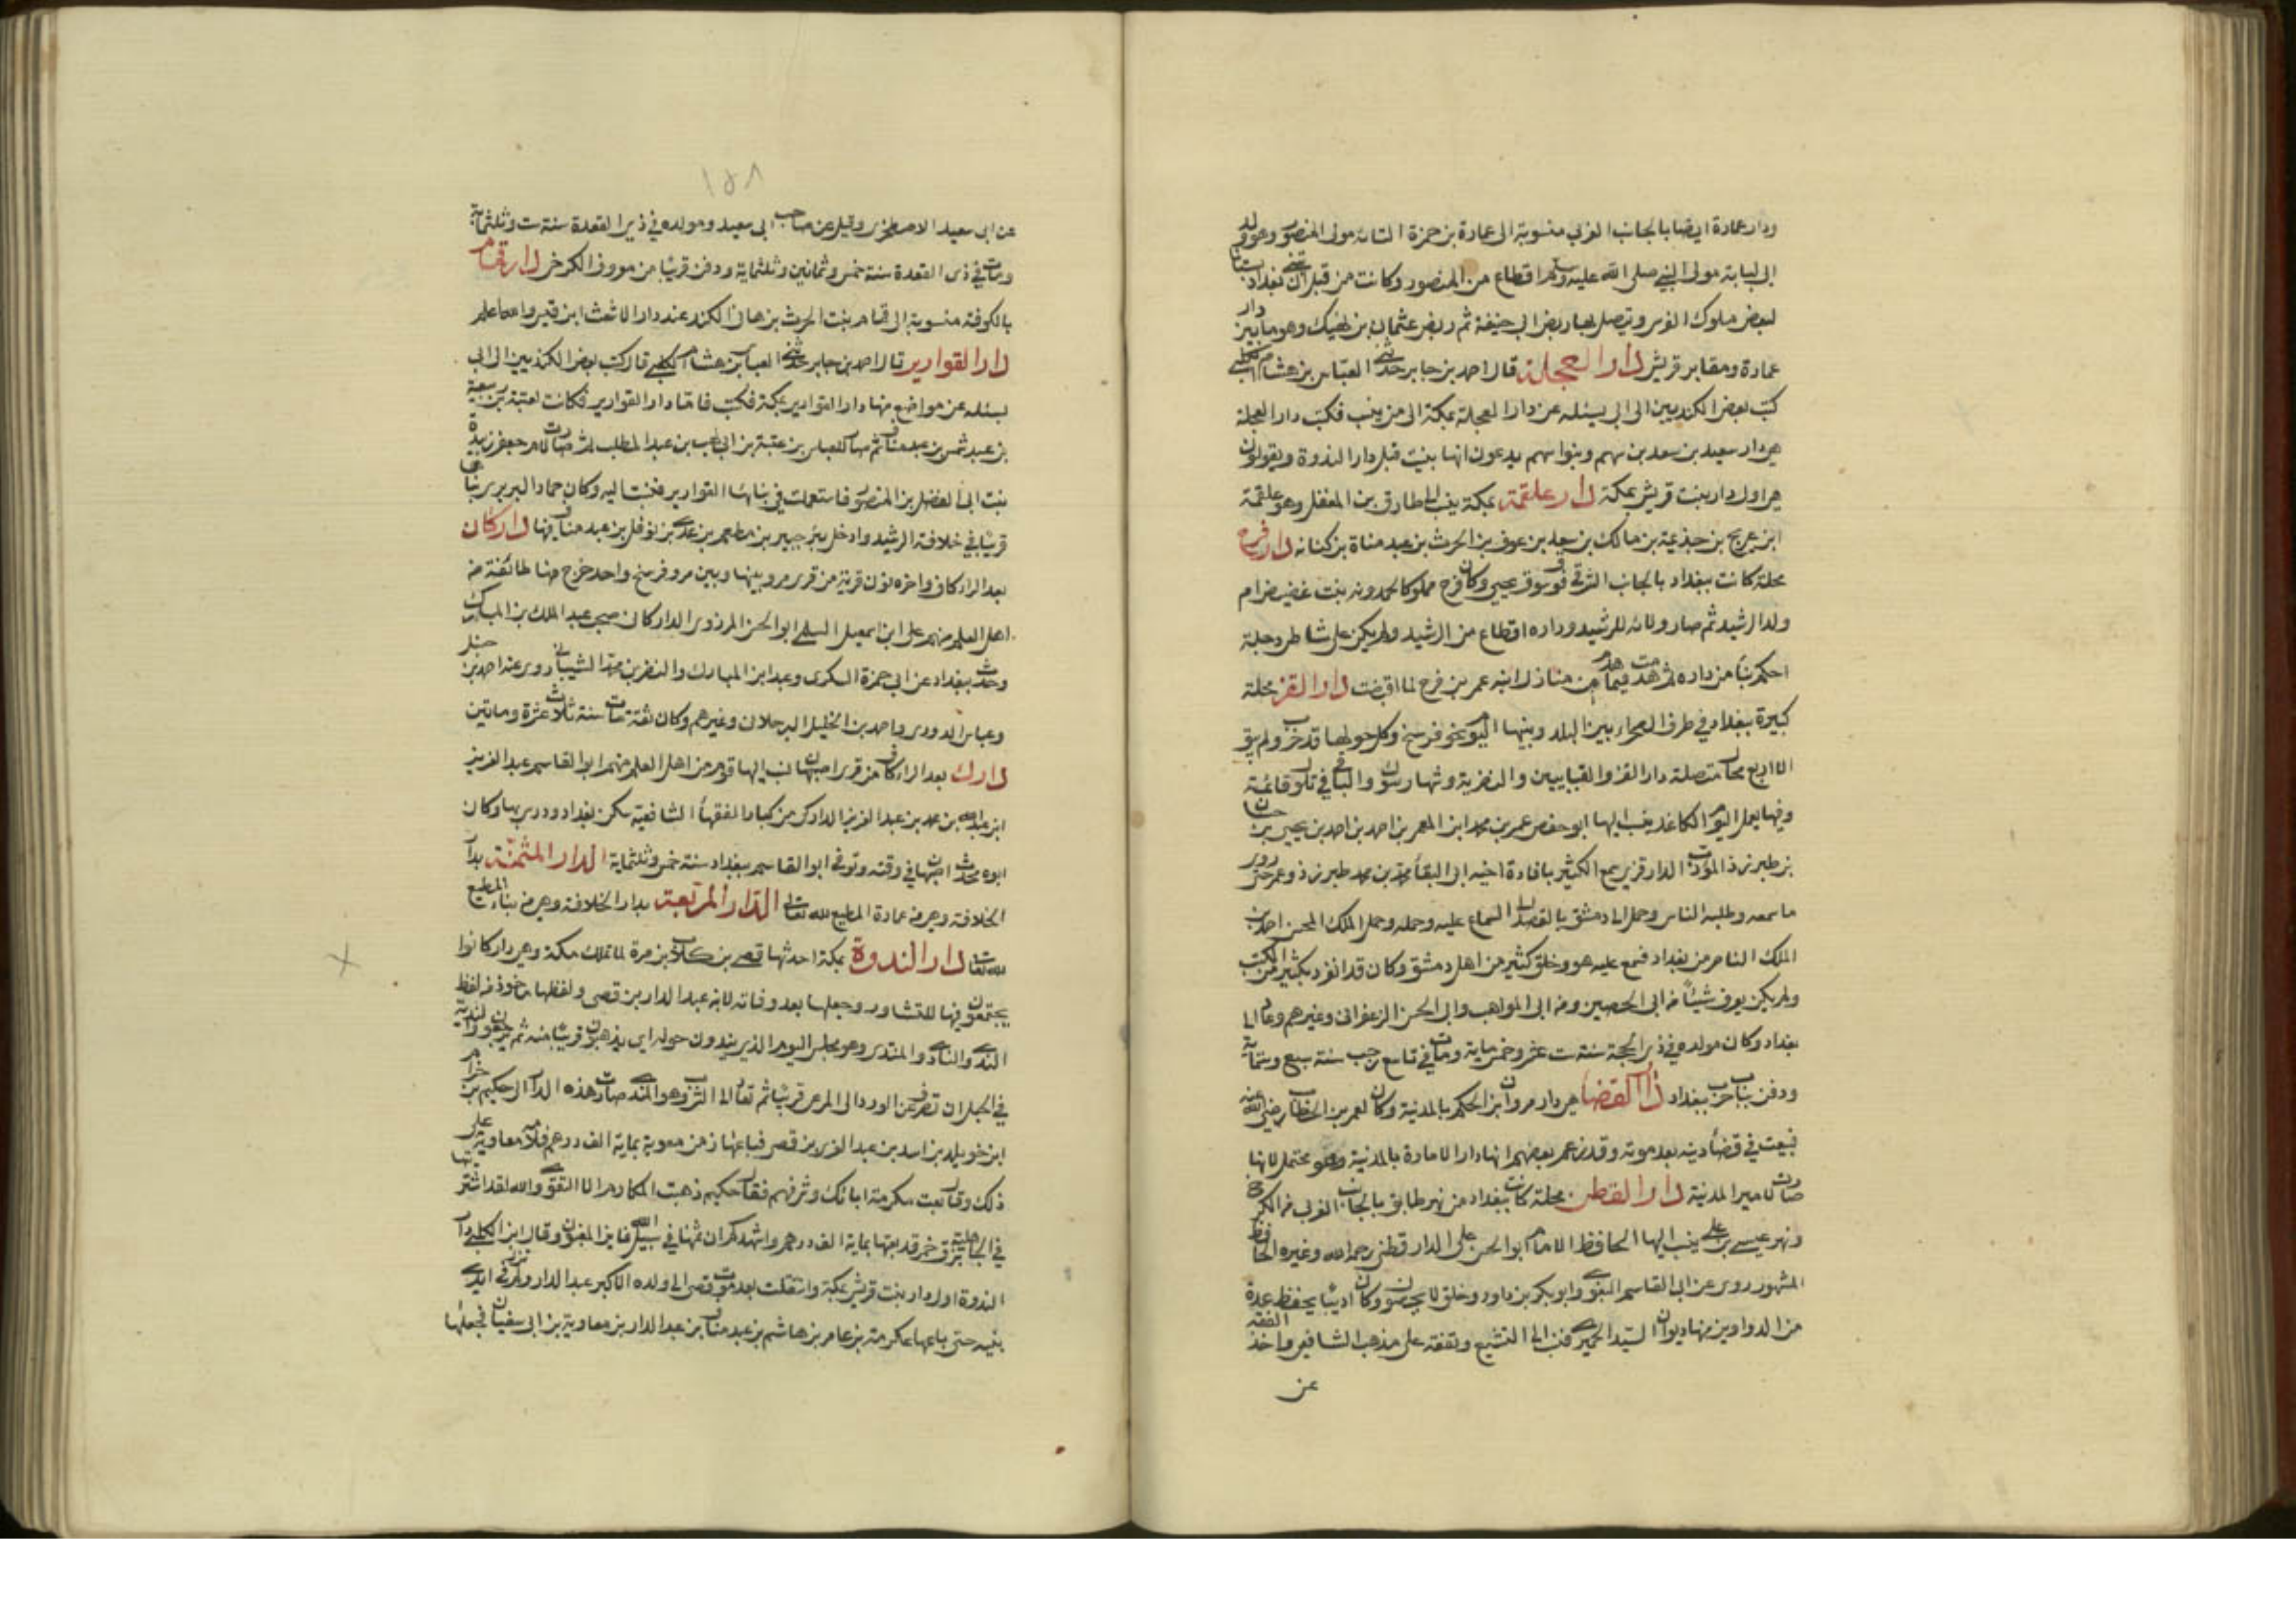 ودار عمارة ايضا بالجانب الغربي منسوبة الى عمارة بن حمزة مولى المنصور وهو من ولد
ابى لبابة مولى النبي صلى الله عليه وسلم اقطاع من المنصور وكانت من قبل ان تبنى بغداد بستانا
لبعض ملوك الفرس ويتصل بها ربض ابى حنيفة ثم ربض عثمان بن نهيك وهو ما بين دار
عمارة ومقابر قريش دار العجلة قال احمد بن جابر حدثنى العباس بن هشام الكلبى
كتب بعض الكنديين الى ابى يسئله عن دار العجلة بمكة الى من ينسب فكتب دار العجلة
هى دار سعيد بن سعد بن سهم وبنوا سهم يدعون انها بنيت قبل دار الندوة ويقولون
هى اول دار بنت قريش بمكة دار علقمة بمكة ينسب الى طارق بن المعقل وهو علقمة
ابن عريج بن جذيمة بن مالك بن سعد بن عوف بن الحرث بن عبد مناة بن كنانه دار فرج
محلة كانت ببغداد بالجانب الشرقى فوق سوق يحيى وكان فرج مملوكا لحمدونه بنت غضيض ام
ولد الرشيد ثم صار ولائه للرشيد وداره اقطاع من الرشيد ولم يكن على شاطى دجلة
احكم بناء من داره ثم هدمت فيما هدم من منازل ابنه عمر بن فرج لما قبضت دار القز محلة
كبيرة ببغداد في طرف الصحراء بين البلد وبينها اليوم نحو فرسخ وكل حولها قد خرب ولم يبق
الا اربع محال متصلة دار القز والعتابيين والنصرية وشهارسوك والباقى تلول قائمة
وفيها يعمل اليوم الكاغد ينسب اليها ابو حفص عمر بن محمد ابن المعمر بن احمد بن يحيى بن حسان
بن طبرزذ المؤدب الدارقزى سمع الكثير بافادة اخيه ابى البقاء محمد بن محمد طبرزذ وعمر حتى روى
ما سمعه وطلبه الناس وحمل الى دمشق بالقصد الى السماع عليه وحمله وحمل الملك المحسن احمد بن
الملك الناصر من بغداد فسمع عليه هو وخلق كثير من اهل دمشق وكان قد انفرد بكثير من الكتب
ولم يكن يعرف شيئا من ابى الحصين ومن ابى المواهب وابى الحسن الزعفرانى وغيرهم وعاد الى
بغداد وكان مولده في ذى الحجة سنة ست عشر وخمسماية ومات في تاسع رجب سنة سبع وستماية
ودفن بباب حرب ببغداد دار القضا هى دار مروان بن الحكم بالمدنية وكان لعمر بن الخطاب رضى الله عنه
فبيعت في قضاء دينه بعد موته وقد زعم بعضهم انها دار الامارة بالمدنية وهو محتمل لانها
صارت لامير المدنية دار القطن محلة كانت ببغداد من نهر طابق بالجانب الغربى من الكرخ
ونهر عيسى بن على ينسب اليها الحافظ الامام ابو الحسن على الدارقطنى رحمه الله وغيره الحافظ
المشهور روى عن ابى القاسم البغوى وابو بكر بن داود وخلق لا يحصون وكان اديبا يحفظ عدة
من الدواوين منها ديوان السيد الحميرى فنسب الى التشيع وتفقه على مذهب الشافعى واخذ الفقه
عن
١٥٨
عن ابى سعيد الاصطخرى وقيل عن صاحب ابى سعيد ومولده في ذى القعدة سنة ست وثلثماية
ومات في ذى القعدة سنة خمس وثمانين وثلثماية ودفن قريبا من معروف الكرخى دار قمام
بالكوفة منسوبة الى قمام بنت الحرث بن هانى الكندى عند دار الاشعث ابن قيس والله اعلم
دار القوارير قال احمد بن جابر حدثنى العباس بن هشام الكلبى قال كتب بعض الكنديين الى ابى
يسئله عن مواضع منها دار القوارير بمكة فكتب فاما دار القوارير فكانت لعتبة بن ربيعة
بن عبد شمس بن عبد مناف ثم صار للعباس بن عتبة بن ابى لهب بن عبد المطلب ثم صارت لام جعفر زبيدة
بنت ابى الفضل بن المنصور فاستعملت في بنائها القوارير فنسبت اليه وكان حماد البربرى بناها
قريبا في خلافة الرشيد وادخل بئر جبير بن مطعم بن عدى بن نوفل بن عبد مناف فيها داركان
بعد الراء كاف واخره نون قرية من قرى مرو بينها وبين مرو فرسخ واحد خرج منها طائفة من
اهل العلم منهم على ابن اسمعيل السلمى ابو الحسن المروزى الداركانى صحب عبد الملك بن المبارك
وحدث ببغداد عن ابى حمزة السكرى وعبد ابن المبارك والنضر بن محمد الشيبانى روى عنه احمد بن حنبل
وعباس الدورى واحمد بن الخليل البرجلانى وغيرهم وكان ثقة مات سنة ثلاث عشرة وماتين
دارك بعد الراء كاف من قرى اصبهان نسب اليها قوم من اهل العلم منهم ابو القاسم عبد العزيز
ابن عبد الله بن محمد بن عبد العزيز الداركى من كبار الفقهاء الشافعية سكن بغداد ودرس بها وكان
ابوه محدث اصبهان في وقته وتوفى ابو القاسم ببغداد سنة خمس وثلثماية الدار المثمنة بدار
الخلافة وهى من عمارة المطيع لله تعالى الدار المربعة بدار الخلافة وهى من بناء المطيع
لله تعالى دار الندوة بمكة احدثها قصى بن كلاب بن مرة لما تملك مكة وهى دار كانوا
يجتمعون فيها للتشاور وجعلها بعد وفاته لابنه عبد الدار بن قصى ولفظها ماخوذ من لفظ
الندى والنادى والمنتدى وهو مجلس القوم الذى يندون حوله اى يذهبون قريبا منه ثم يرجعون
في الجبل ان تصرف عن الورد الى المرعى قريبا ثم تعاد الى الشرب وهو المندى صارت هذه الدار الى حكيم بن حزام
ابن خويلد بن اسد بن عبد العزى بن قصى فباعها من معوية بماية الف درهم فلامه معاوية على
ذلك وقال بعت مكرمة ابائك وشرفهم فقال حكيم ذهبت المكارم الا التقوى والله لقد اشتريتها
في الجاهلية بزق خمر وقد بعتها بماية الف درهم واشهدكم ان ثمنها في سبيل الله فاينا المغبون وقال ابن الكلبى دار
الندوة اول دار بنت قريش بمكة وانتقلت بعد موت قصى الى ولده الاكبر عبد الدار ولم تزل في ايدى
بنيه حتى باعها عكرمة بن عامر بن هاشم بن عبد مناف بن عبد الدار بن معاوية بن ابى سفيان فجعلها